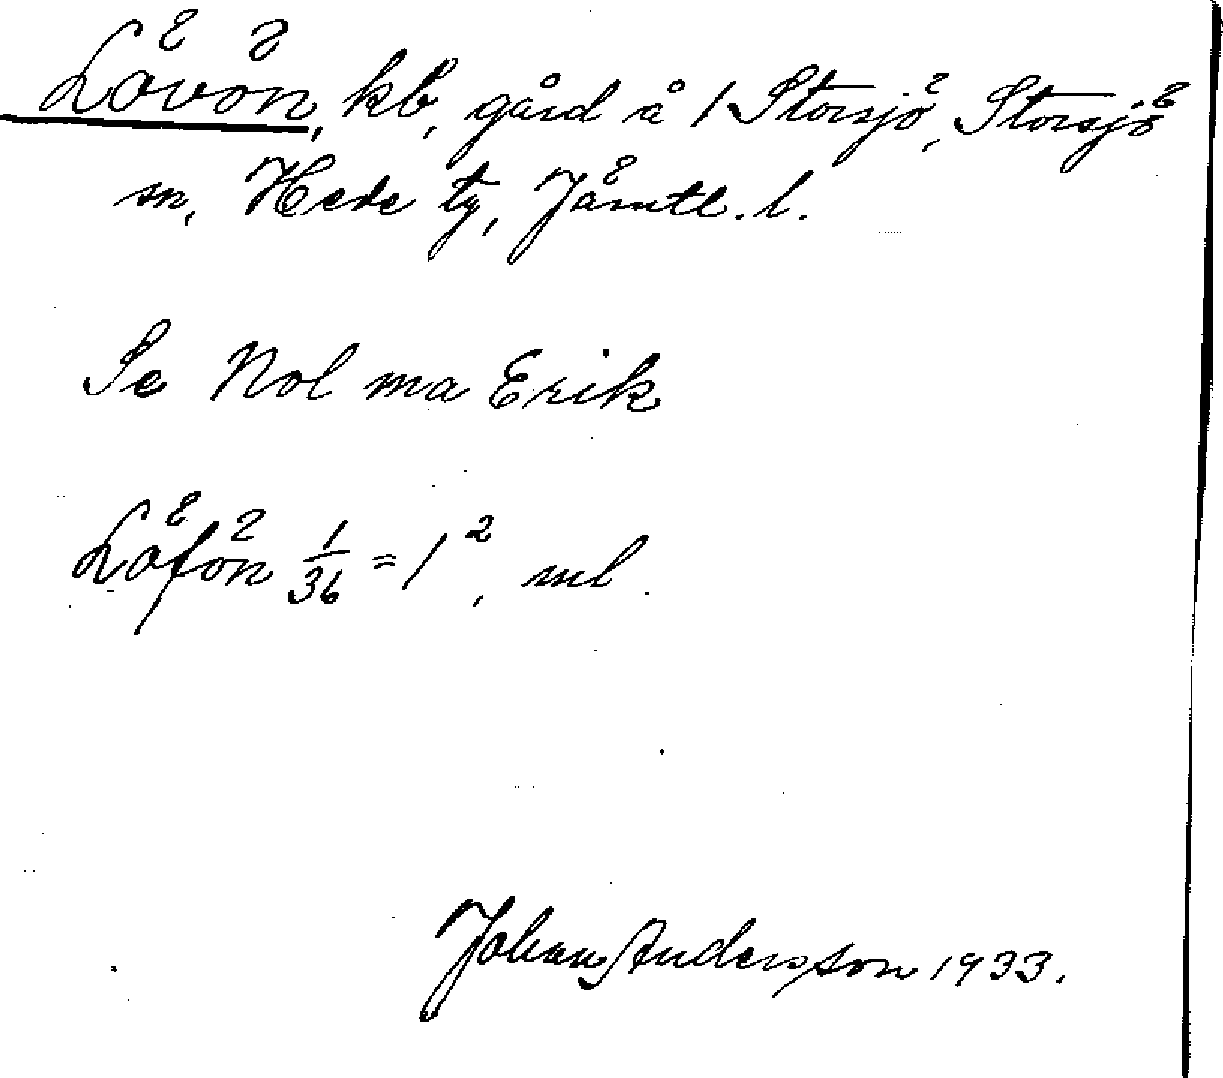 Lövön, kb, gård å 1 Storsjö, Storsjö
sn, Hede tg, Jämtl. l.
Se Nol ma Erik
Löfön 1/36 = 1², ml.
Johan Andersson 1933.